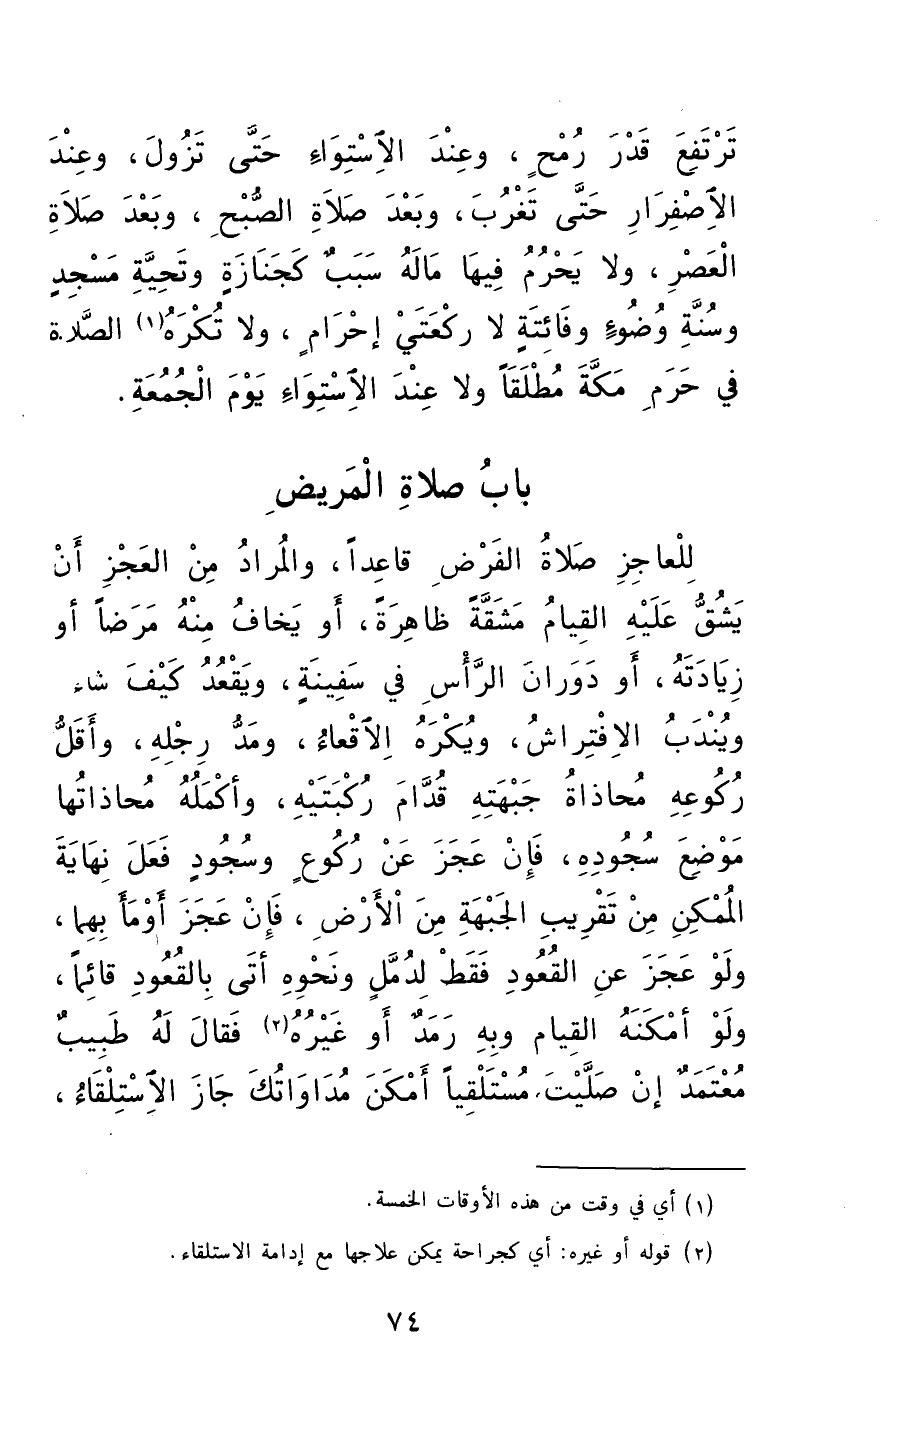 تَرْتَفِعَ قَدْرَ رُمْحٍ ، وعِنْدَ الاِسْتِوَاءِ حَتَّى تَزُولَ ، وعِنْدَ
الاِصْفِرَارِ حَتَّى تَغْرُبَ ، وبَعْدَ صَلَاةِ الصُّبْحِ ، وبَعْدَ صَلَاةِ
الْعَصْرِ ، ولا يَحْرُمُ فِيهَا مَالَهُ سَبَبٌ كَجَنَازَةٍ وتَحِيَّةِ مَسْجِدٍ
وسُنَّةِ وُضُوءٍ وفَائِتَةٍ لا ركْعَتَيْ إحْرَامٍ ، ولا تُكْرَهُ(١) الصَّلاة
في حَرَمِ مَكَّةَ مُطْلَقَاً ولا عِنْدَ الاِسْتِوَاءِ يَوْمَ الْجُمُعَةِ .
بابُ صلاةِ الْمَريضِ
لِلْعاجِزِ صَلَاةُ الفَرْضِ قاعِداً ، والمُرادُ مِنْ العَجْزِ أَنْ
يَشُقَّ عَلَيْهِ القِيامُ مَشَقَّةً ظاهِرَةً ، أَو يَخافُ مِنْهُ مَرَضاً أو
زِيَادَتَهُ ، أَو دَوَرانَ الرَّأْسِ في سَفِينَةٍ ، ويَقْعُدُ كَيْفَ شاء
ويُنْدَبُ الافْتِراشُ ، ويُكْرَهُ الِاقْعاءُ ، ومَدُّ رِجْلِهِ ، وأَقَلُّ
رُكُوعِهِ مُحاذاةُ جَبْهَتِهِ قُدَّامَ رُكْبَتَيْهِ ، وأكْمَلُهُ مُحاذاتُها
مَوْضِعَ سُجُودِهِ ، فَإِنْ عَجَزَ عَنْ رُكُوعٍ وسُجُودٍ فَعَلَ نِهَايَةَ
المُمْكِنِ مِنْ تَقْرِيبِ الجَبْهَةِ مِنَ الْأَرْضِ ، فَإِنْ عَجَزَ أَوْمَأَ بِهِما ،
ولَوْ عَجَزَ عنِ القُعُودِ فَقَطْ لِدُمَّلٍ ونَحْوِهِ أتَى بِالقُعُودِ قائِماً ،
ولَوْ أمْكَنَهُ القِيام وبِهِ رَمَدٌ أَو غَيْرُهُ(٢) فَقالَ لَهُ طَبِيبٌ
مُعْتَمَدٌ إنْ صَلَّيْتَ مُسْتَلْقِياً أَمْكَنَ مُدَاوَاتُكَ جَازَ الاِسْتِلْقَاءُ ،
(١) أي في وقت من هذه الأوقات الخمسة .
(٢) قوله أو غيره : أي كجراحة يمكن علاجها مع إدامة الاستلقاء .
٧٤